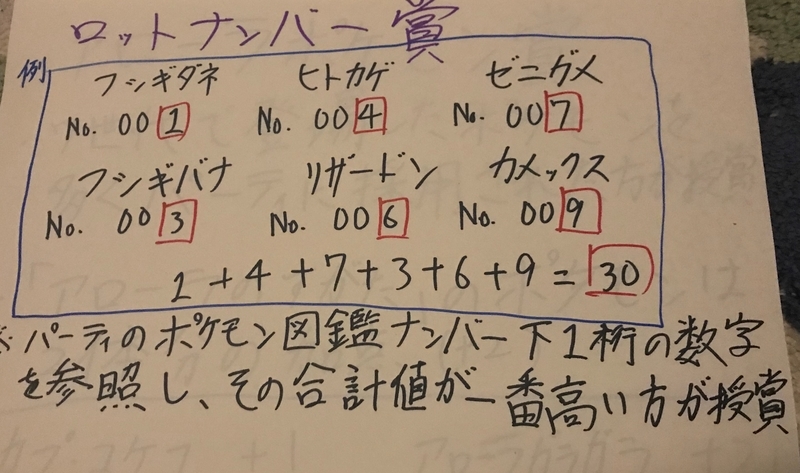 ロットナンバー賞
例
フシギダネ ヒトカゲ ゼニガメ
No. 001 No. 004 No. 007
フシギバナ リザードン カメックス
No. 003 No. 006 No. 009
1+4+7+3+6+9=30
※パーティのポケモン図鑑ナンバー下1桁の数字
を参照し、その合計値が一番高い方が授賞